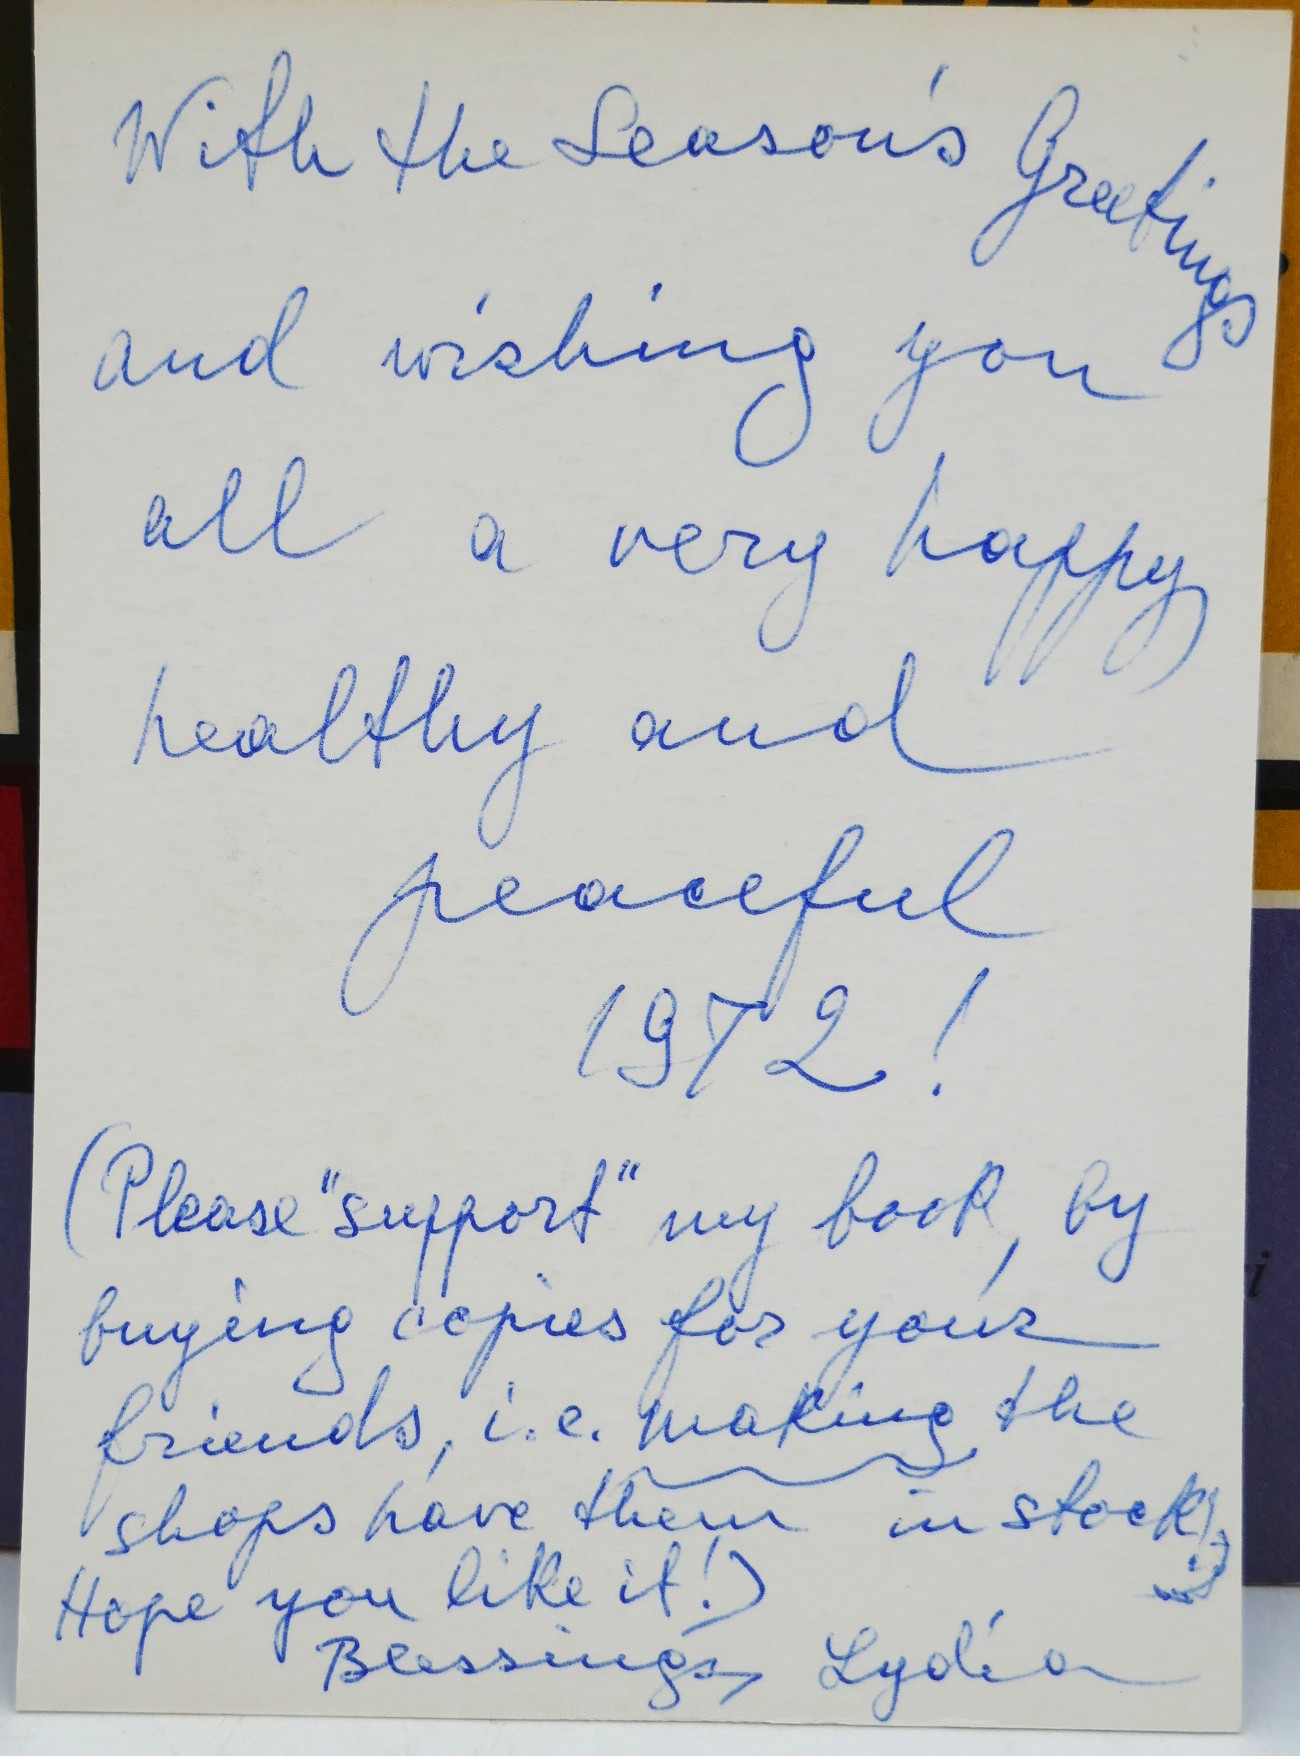 With the Season's Greetings
and wishing you
all a very happy,
healthy and
peaceful
1972!
(Please "support" my book, by
buying copies for your
friends, i.e. making the
shops have them in stock!
Hope you like it!)
Blessings, Lydia